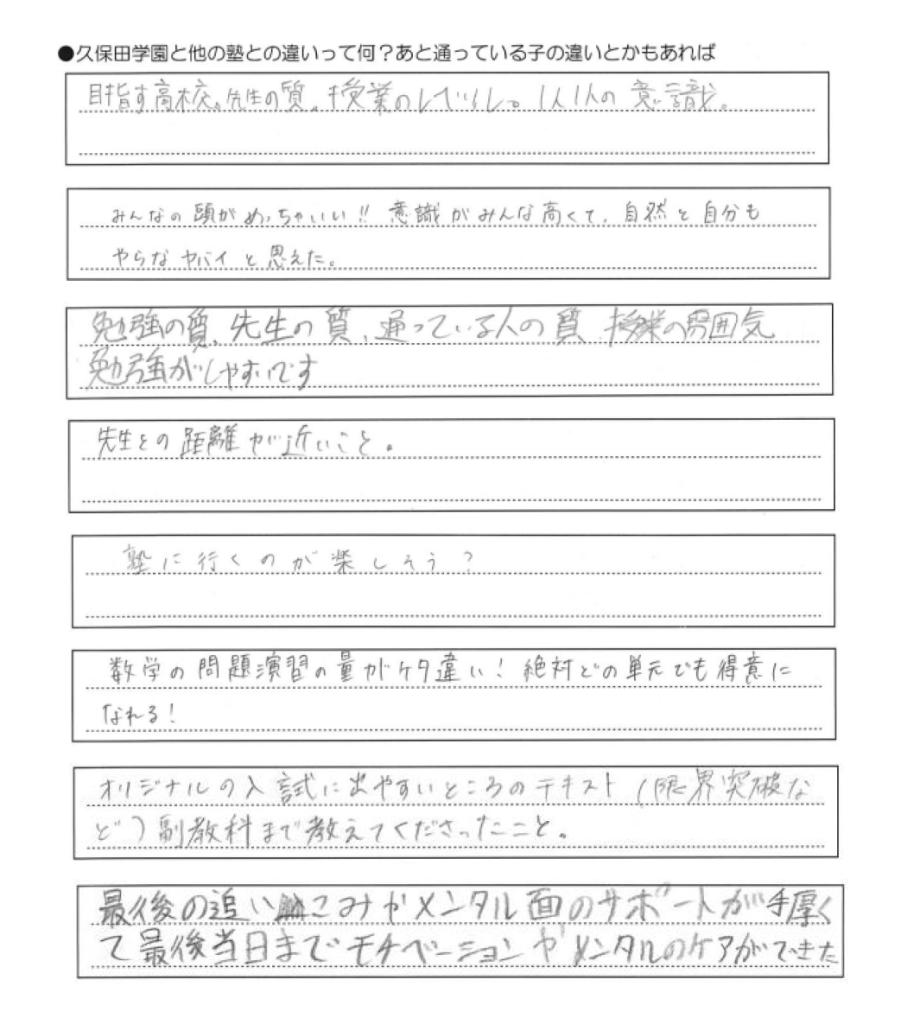 ●久保田学園と他の塾との違いって何？あと通っている子の違いとかもあれば
目指す高校。先生の質。授業のレベル。1人1人の意識。
みんなの頭がめっちゃいい!! 意識がみんな高くて、自然と自分も
やらなヤバイと思えた。
勉強の質、先生の質、通っている人の質 授業の雰囲気
勉強がしやすいです
先生との距離が近いこと。
塾に行くのが楽しそう？
数学の問題演習の量がケタ違い！絶対どの単元でも得意に
なれる！
オリジナルの入試に出やすいところのテキスト（限界突破な
ど）副教科まで教えてくださったこと。
最後の追い こみやメンタル面のサポートが手厚く
て最後当日までモチベーションやメンタルのケアができた